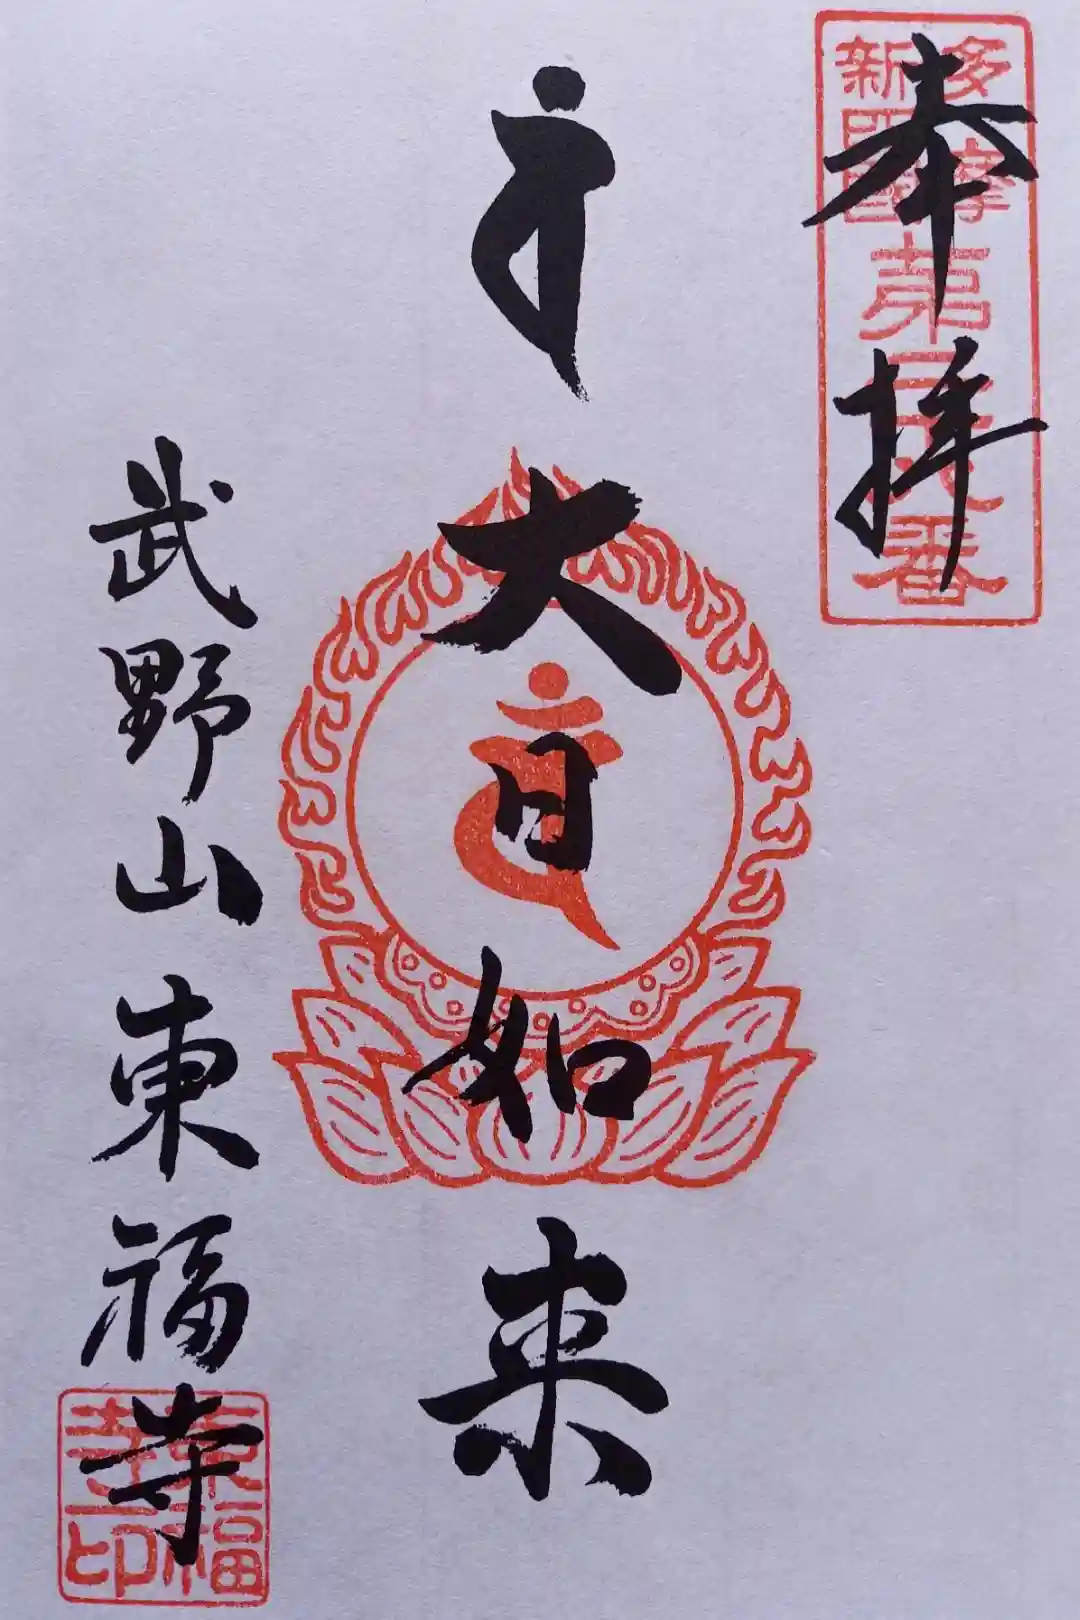 奉拝
多摩
新四國
第
番
大日如来
武野山東福寺
東福
寺印